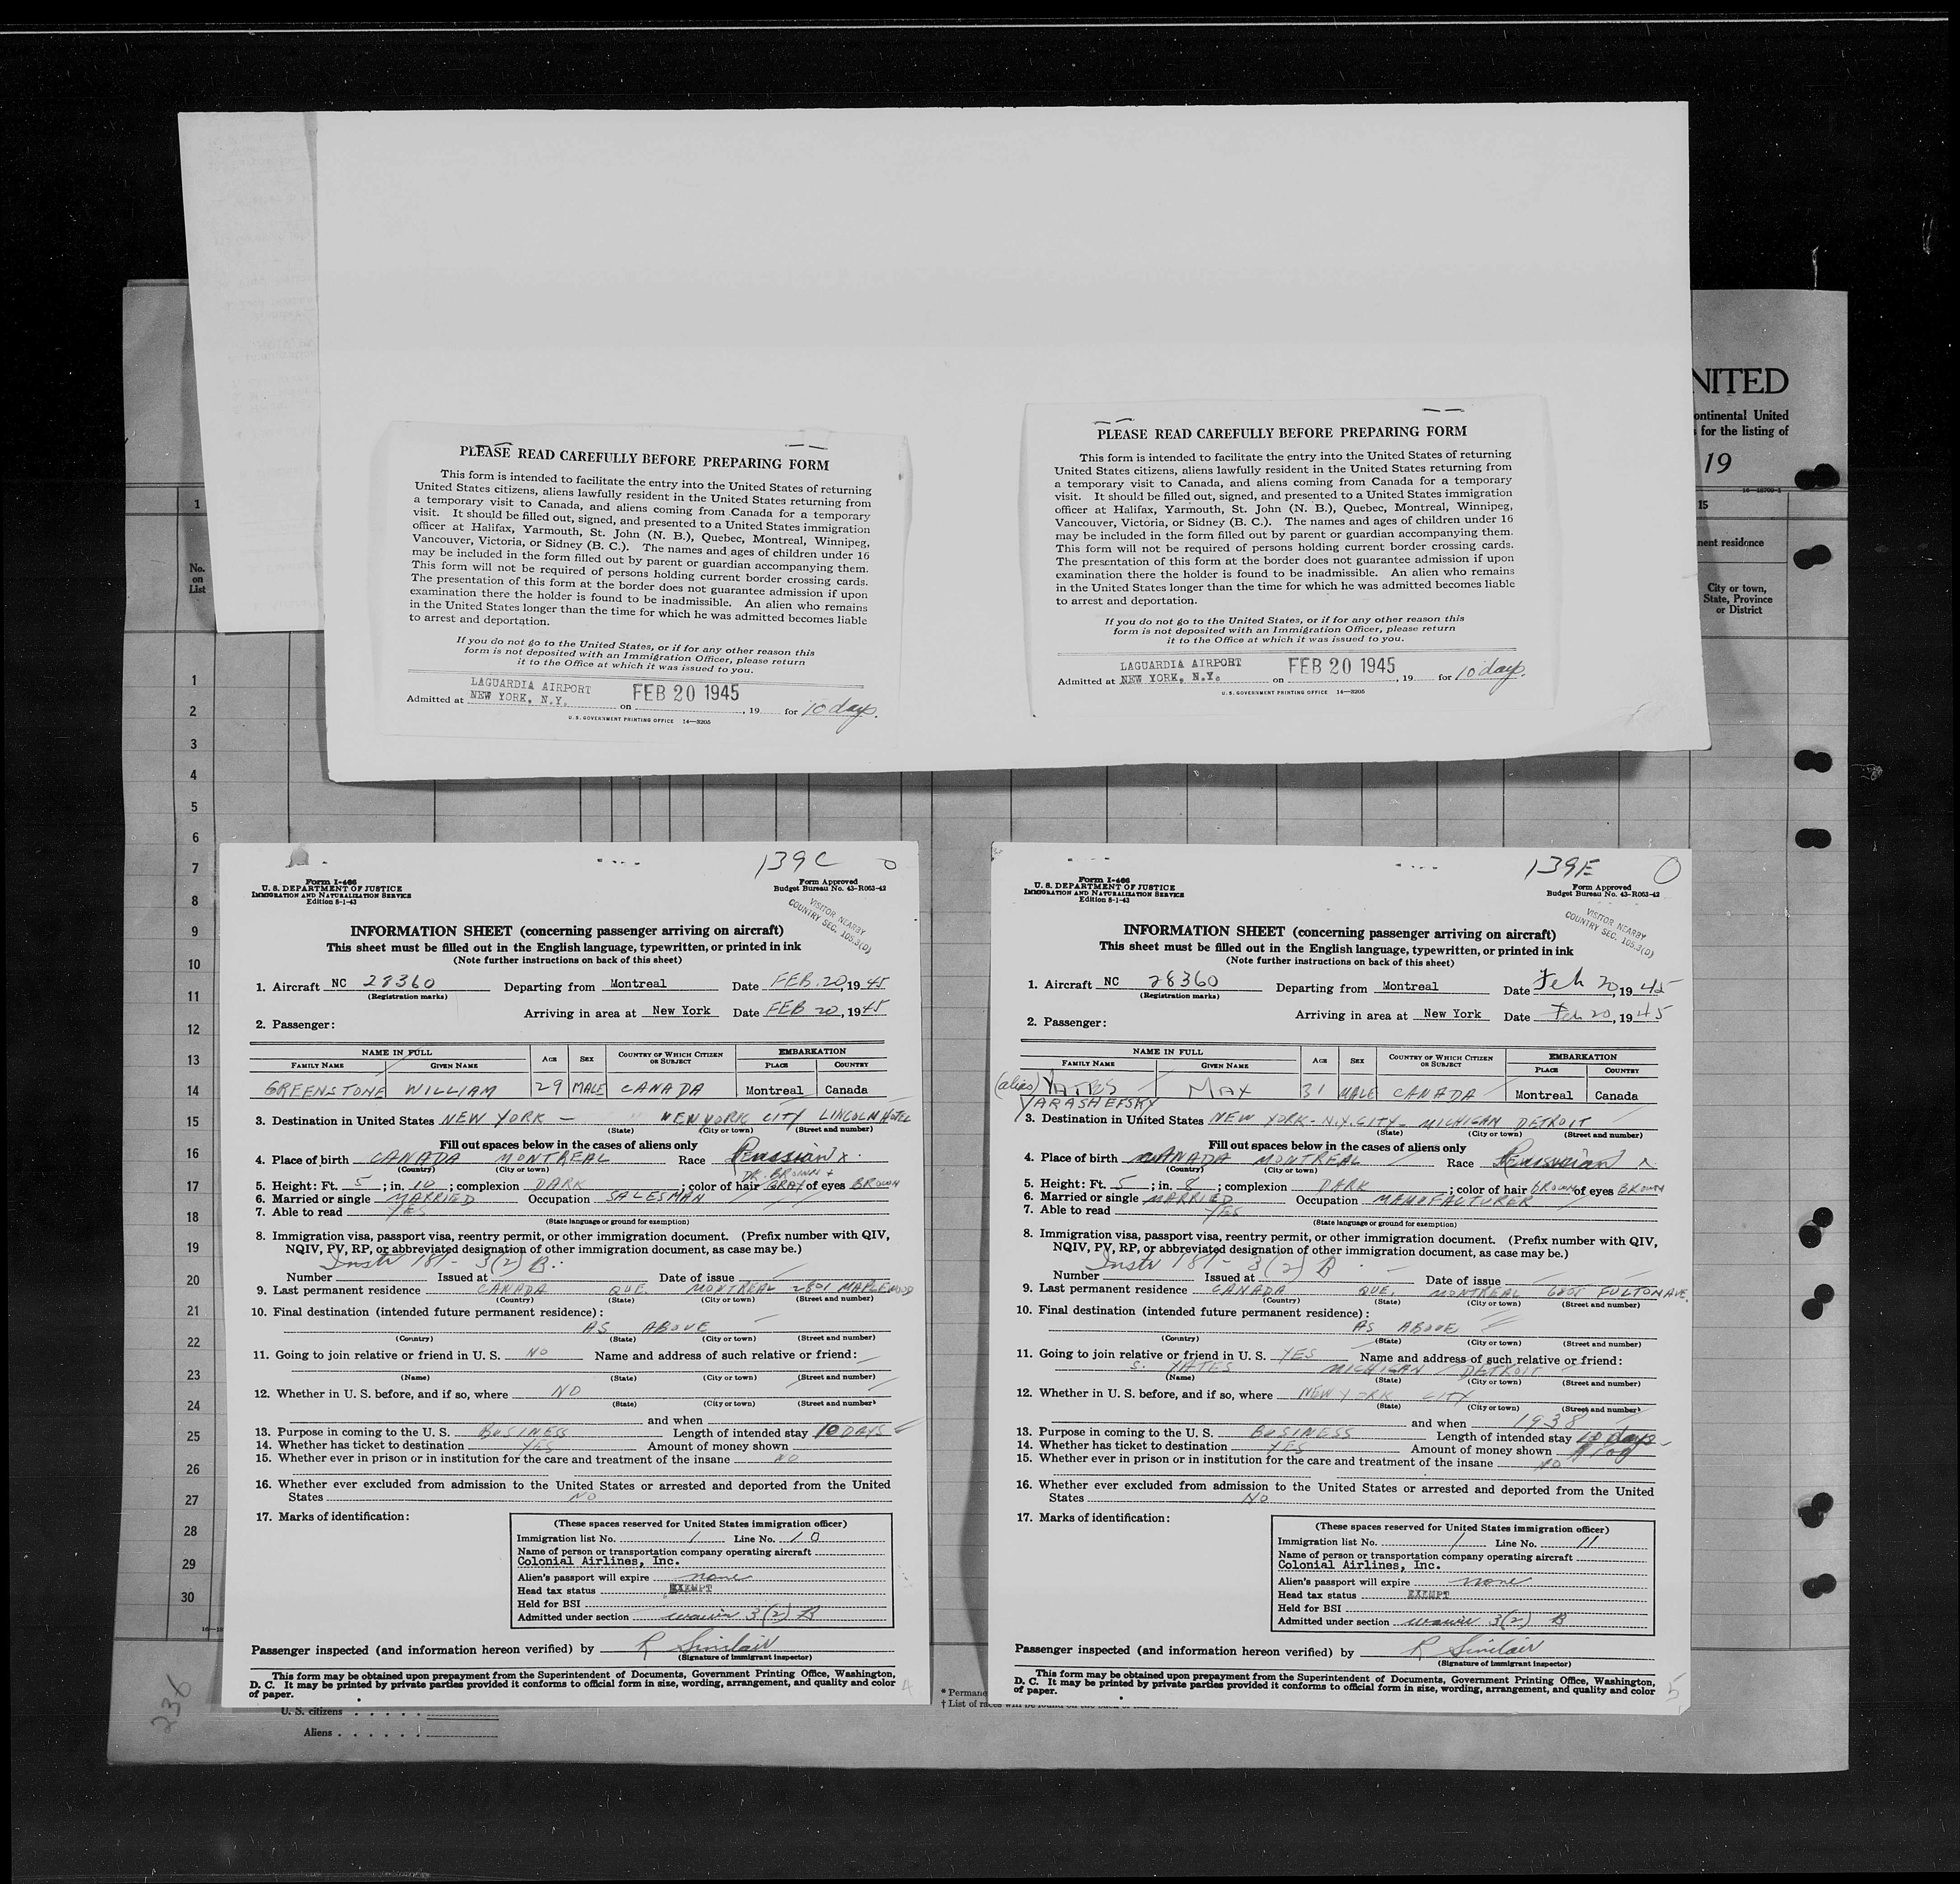 PLEASE READ CAREFULLY BEFORE PREPARING FORM
This form is intended to facilitate the entry into the United States of returning
United States citizens, aliens lawfully resident in the United States returning from
a temporary visit to Canada, and aliens coming from Canada for a temporary
visit. It should be filled out, signed, and presented to a United States immigration
officer at Halifax, Yarmouth, St. John (N. B.), Quebec, Montreal, Winnipeg,
Vancouver, Victoria, or Sidney (B. C.). The names and ages of children under 16
may be included in the form filled out by parent or guardian accompanying them.
This form will not be required of persons holding current border crossing cards.
The presentation of this form at the border does not guarantee admission if upon
examination there the holder is found to be inadmissible. An alien who remains
in the United States longer than the time for which he was admitted becomes liable
to arrest and deportation.
If you do not go to the United States, or if for any other reason this
form is not deposited with an Immigration Officer, please return
it to the Office at which it was issued to you.
LAGUARDIA AIRPORT
Admitted at NEW YORK, N.Y. on FEB 20 1945, 19 for 10 days.
U. S. GOVERNMENT PRINTING OFFICE 16—3205
PLEASE READ CAREFULLY BEFORE PREPARING FORM
This form is intended to facilitate the entry into the United States of returning
United States citizens, aliens lawfully resident in the United States returning from
a temporary visit to Canada, and aliens coming from Canada for a temporary
visit. It should be filled out, signed, and presented to a United States immigration
officer at Halifax, Yarmouth, St. John (N. B.), Quebec, Montreal, Winnipeg,
Vancouver, Victoria, or Sidney (B. C.). The names and ages of children under 16
may be included in the form filled out by parent or guardian accompanying them.
This form will not be required of persons holding current border crossing cards.
The presentation of this form at the border does not guarantee admission if upon
examination there the holder is found to be inadmissible. An alien who remains
in the United States longer than the time for which he was admitted becomes liable
to arrest and deportation.
If you do not go to the United States, or if for any other reason this
form is not deposited with an Immigration Officer, please return
it to the Office at which it was issued to you.
LAGUARDIA AIRPORT
Admitted at NEW YORK, N.Y. on FEB 20 1945, 19 for 10 days.
U. S. GOVERNMENT PRINTING OFFICE 16—3205
NITED
ontinental United
for the listing of
19
15
nent residence
City or town,
State, Province
or District
1
No.
on
List
1
2
3
4
5
6
7
8
9
10
11
12
13
14
15
16
17
18
19
20
21
22
23
24
25
26
27
28
29
30
139C 0
Form I-466
U. S. DEPARTMENT OF JUSTICE
IMMIGRATION AND NATURALIZATION SERVICE
Edition 8-1-43
Form Approved
Budget Bureau No. 43-R063-42
VISITOR NEARBY
COUNTRY SEC. 105.3(D)
INFORMATION SHEET (concerning passenger arriving on aircraft)
This sheet must be filled out in the English language, typewritten, or printed in ink
(Note further instructions on back of this sheet)
1. Aircraft NC 28360 Departing from Montreal Date FEB. 20, 1945
(Registration marks)
Arriving in area at New York Date FEB 20, 1945
2. Passenger:
NAME IN FULL AGE SEX COUNTRY OF WHICH CITIZEN OR SUBJECT EMBARKATION
FAMILY NAME GIVEN NAME PLACE COUNTRY
GREENSTONE WILLIAM 29 MALE CANADA Montreal Canada
3. Destination in United States NEW YORK — NEW YORK CITY LINCOLN HOTEL
(State) (City or town) (Street and number)
Fill out spaces below in the cases of aliens only
4. Place of birth CANADA MONTREAL Race x
(Country) (City or town)
DK. BROWN +
5. Height: Ft. 5; in. 10; complexion DARK; color of hair GRAY of eyes BROWN
6. Married or single MARRIED Occupation SALESMAN
7. Able to read YES
(State language or ground for exemption)
8. Immigration visa, passport visa, reentry permit, or other immigration document. (Prefix number with QIV,
NQIV, PV, RP, or abbreviated designation of other immigration document, as case may be.)
Instr 181- 3(2) B.
Number Issued at Date of issue
9. Last permanent residence CANADA QUE. MONTREAL 2801 MAPLEWOOD
(Country) (State) (City or town) (Street and number)
10. Final destination (intended future permanent residence):
AS ABOVE
(Country) (State) (City or town) (Street and number)
11. Going to join relative or friend in U. S. NO Name and address of such relative or friend:
(Name) (State) (City or town) (Street and number)
12. Whether in U. S. before, and if so, where NO
(State) (City or town) (Street and number)
and when
13. Purpose in coming to the U. S. BUSINESS Length of intended stay 10 DAYS
14. Whether has ticket to destination YES Amount of money shown
15. Whether ever in prison or in institution for the care and treatment of the insane NO
16. Whether ever excluded from admission to the United States or arrested and deported from the United
States NO
17. Marks of identification:
(These spaces reserved for United States immigration officer)
Immigration list No. 1 Line No. 10
Name of person or transportation company operating aircraft
Colonial Airlines, Inc.
Alien's passport will expire none
Head tax status EXEMPT
Held for BSI
Admitted under section waiver 3(2) B
Passenger inspected (and information hereon verified) by R Sinclair
(Signature of immigrant inspector)
This form may be obtained upon prepayment from the Superintendent of Documents, Government Printing Office, Washington,
D. C. It may be printed by private parties provided it conforms to official form in size, wording, arrangement, and quality and color
of paper.
4
139E 0
Form I-466
U. S. DEPARTMENT OF JUSTICE
IMMIGRATION AND NATURALIZATION SERVICE
Edition 8-1-43
Form Approved
Budget Bureau No. 43-R063-42
VISITOR NEARBY
COUNTRY SEC. 105.3(D)
INFORMATION SHEET (concerning passenger arriving on aircraft)
This sheet must be filled out in the English language, typewritten, or printed in ink
(Note further instructions on back of this sheet)
1. Aircraft NC 28360 Departing from Montreal Date Feb 20, 1945
(Registration marks)
Arriving in area at New York Date Feb 20, 1945
2. Passenger:
NAME IN FULL AGE SEX COUNTRY OF WHICH CITIZEN OR SUBJECT EMBARKATION
FAMILY NAME GIVEN NAME PLACE COUNTRY
(alias) YATES MAX 31 MALE CANADA Montreal Canada
YARASHEFSKY
3. Destination in United States NEW YORK - N.Y. CITY - MICHIGAN DETROIT
(State) (City or town) (Street and number)
Fill out spaces below in the cases of aliens only
4. Place of birth CANADA MONTREAL Race x
(Country) (City or town)
5. Height: Ft. 5; in. 8; complexion DARK; color of hair BROWN of eyes BROWN
6. Married or single MARRIED Occupation MANUFACTURER
7. Able to read YES
(State language or ground for exemption)
8. Immigration visa, passport visa, reentry permit, or other immigration document. (Prefix number with QIV,
NQIV, PV, RP, or abbreviated designation of other immigration document, as case may be.)
Instr 181- 3(2) B
Number Issued at Date of issue
9. Last permanent residence CANADA QUE. MONTREAL FULTON AVE.
(Country) (State) (City or town) (Street and number)
10. Final destination (intended future permanent residence):
AS ABOVE
(Country) (State) (City or town) (Street and number)
11. Going to join relative or friend in U. S. YES Name and address of such relative or friend:
S. YATES MICHIGAN DETROIT
(Name) (State) (City or town) (Street and number)
12. Whether in U. S. before, and if so, where NEW YORK CITY
(State) (City or town) (Street and number)
and when 1938
13. Purpose in coming to the U. S. BUSINESS Length of intended stay 10 days
14. Whether has ticket to destination YES Amount of money shown
15. Whether ever in prison or in institution for the care and treatment of the insane NO
16. Whether ever excluded from admission to the United States or arrested and deported from the United
States NO
17. Marks of identification:
(These spaces reserved for United States immigration officer)
Immigration list No. 1 Line No. 11
Name of person or transportation company operating aircraft
Colonial Airlines, Inc.
Alien's passport will expire none
Head tax status EXEMPT
Held for BSI
Admitted under section waiver 3(2) B
Passenger inspected (and information hereon verified) by R Sinclair
(Signature of immigrant inspector)
This form may be obtained upon prepayment from the Superintendent of Documents, Government Printing Office, Washington,
D. C. It may be printed by private parties provided it conforms to official form in size, wording, arrangement, and quality and color
of paper.
5
236
U. S. citizens
Aliens
* Permane
† List of races will be found on the back of this sheet.